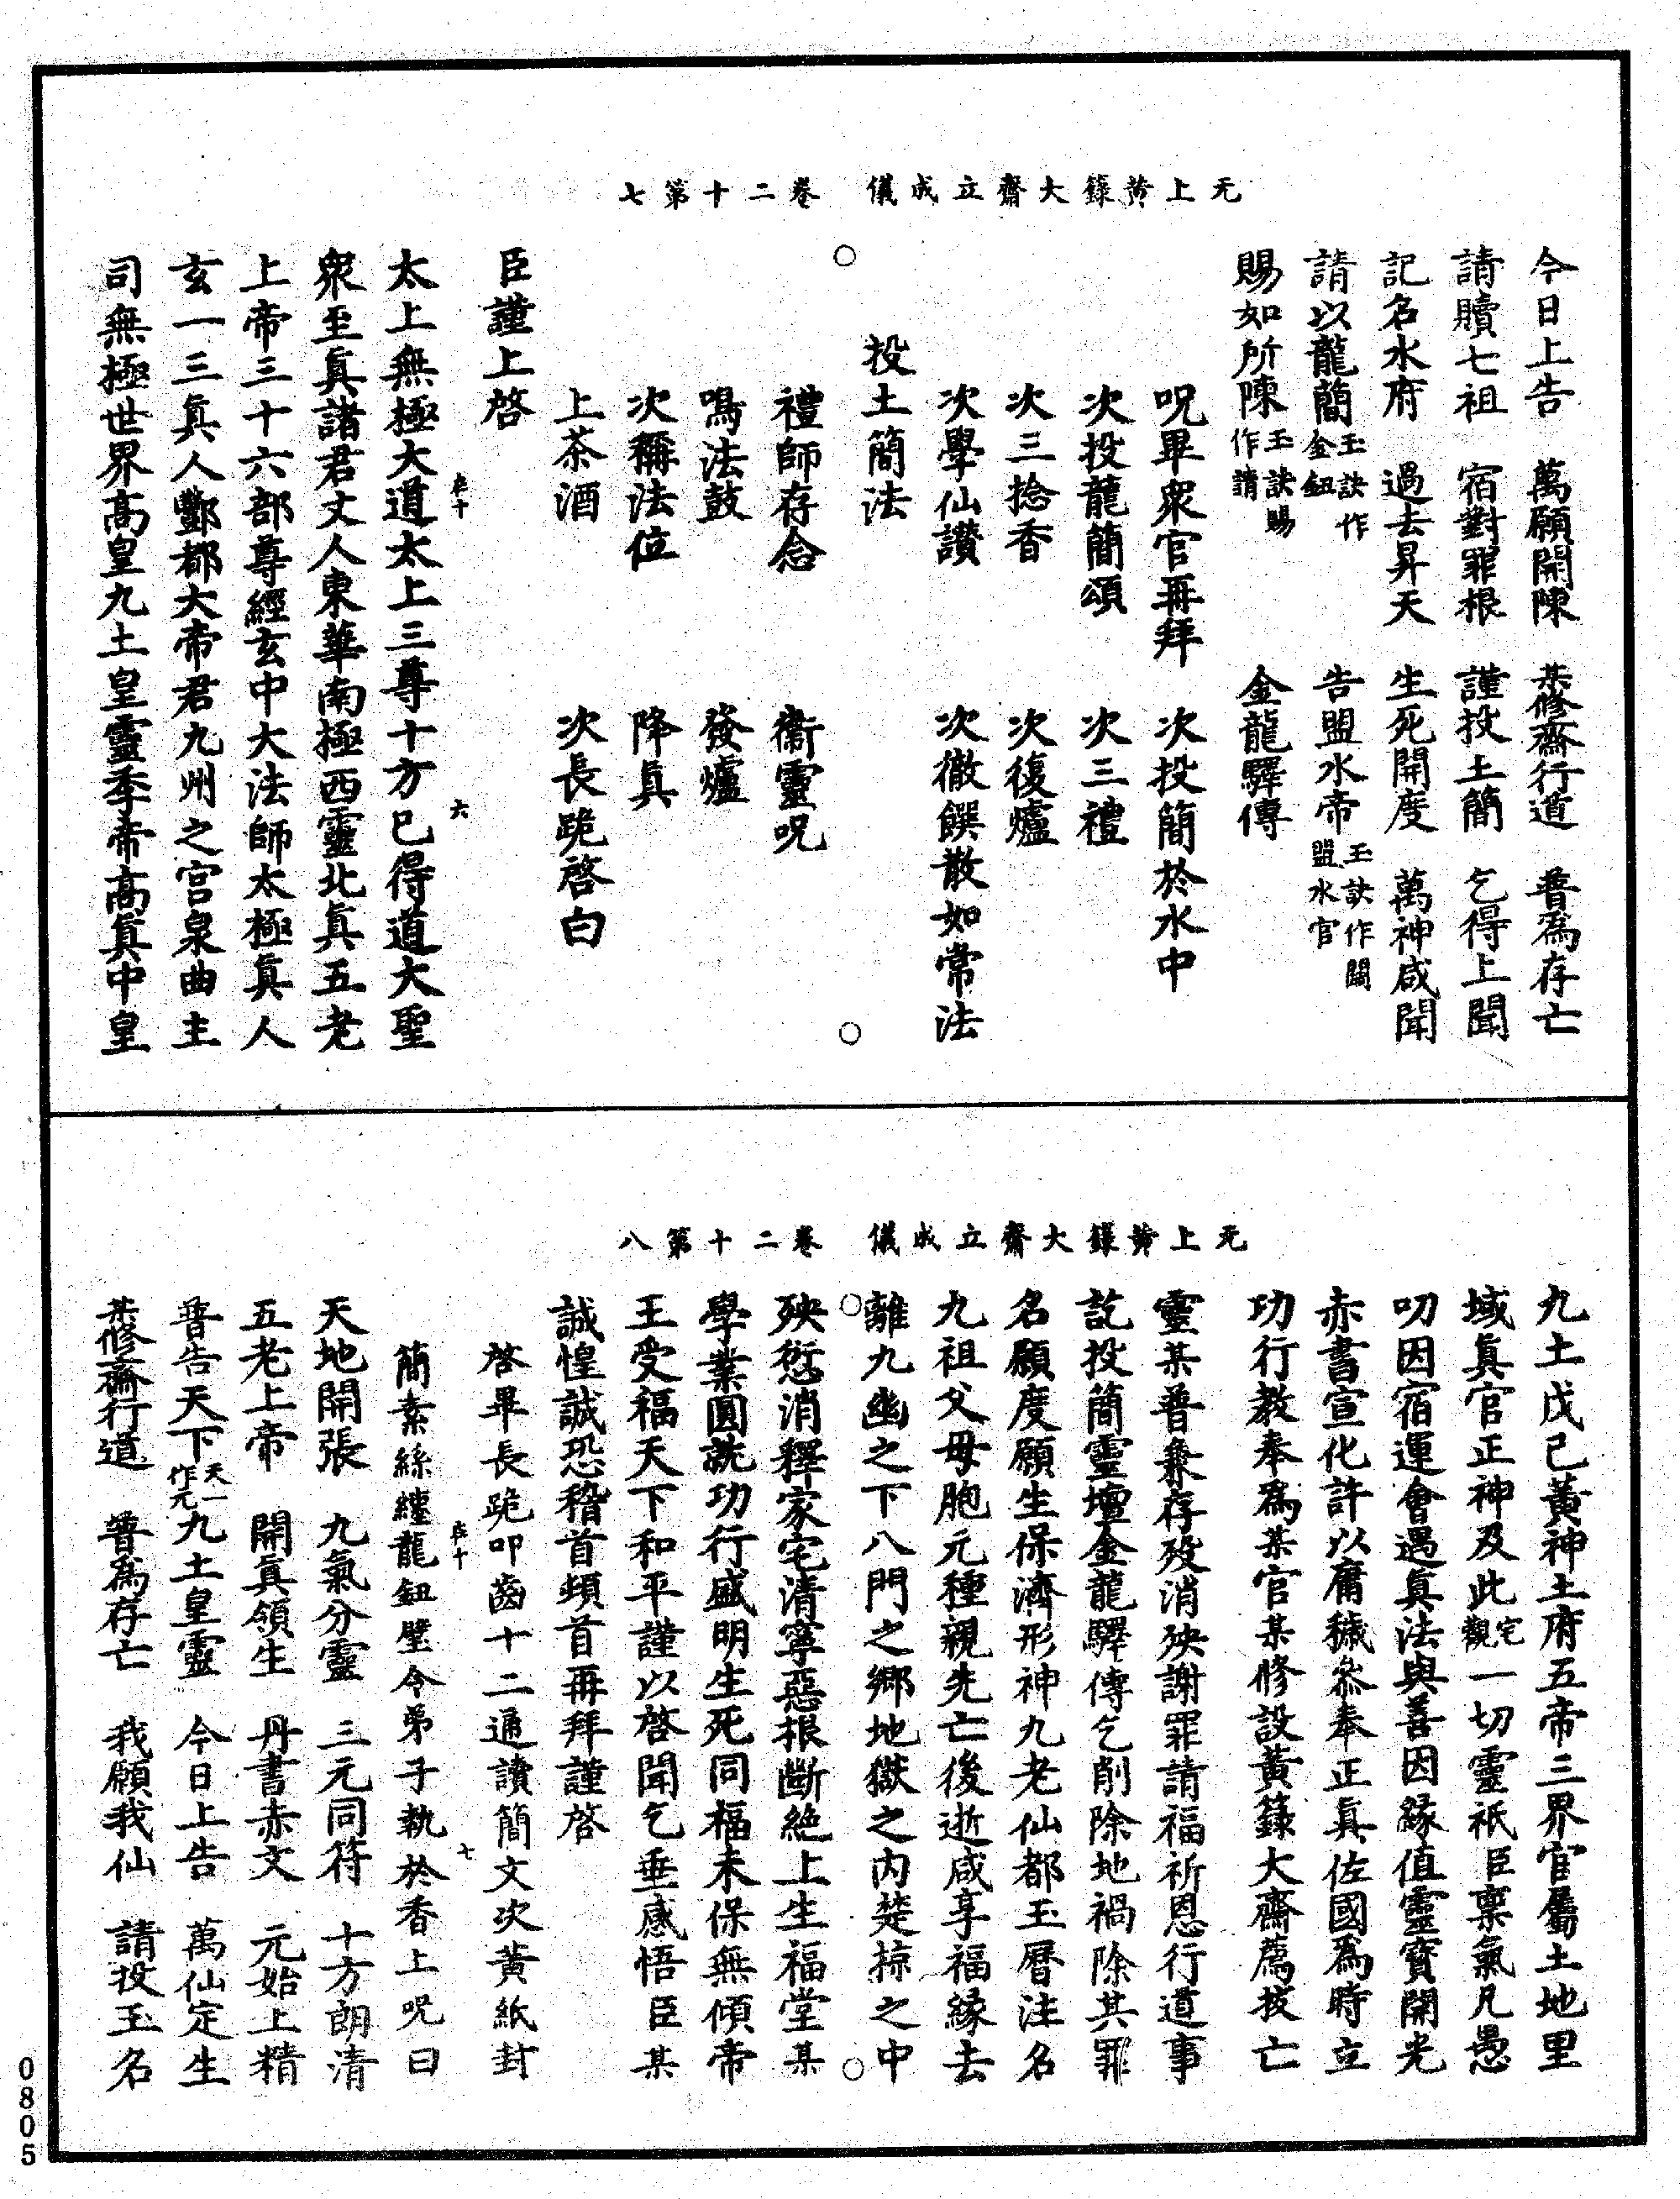 無上黃籙大齋立成儀　卷二十第七
今日上告　萬願開陳　某修齋行道　普爲存亡
請贖七祖　宿對罪根　謹投土簡　乞得上聞
記名水府　過去昇天　生死開度　萬神咸聞
請以龍簡玉訣作金鈕　告盟水帝玉訣作關盟水官
賜如所陳玉訣賜作請　金龍驛傳
呪畢衆官再拜　次投簡於水中
次投龍簡頌　次三禮
次三捻香　次復爐
次學仙讚　次徹饌散如常法
投土簡法
禮師存念　衞靈呪
鳴法鼓　發爐
次稱法位　降眞
上茶酒　次長跪啓白
臣謹上啓
六
太上無極大道太上三尊十方已得道大聖
衆至眞諸君丈人東華南極西靈北眞五老
上帝三十六部尊經玄中大法師太極眞人
玄一三眞人酆都大帝君九州之宮泉曲主
司無極世界高皇九土皇靈季帝高眞中皇
無上黃籙大齋立成儀　卷二十第八
九土戊己黃神土府五帝三界官屬土地里
域眞官正神及此宅觀一切靈祇臣稟氣凡愚
叨因宿運會遇眞法與善因緣值靈寶開光
赤書宣化許以庸穢叅奉正眞佐國爲時立
功行教奉爲某官某修設黃籙大齋薦拔亡
靈某普兼存歿消殃謝罪請福祈恩行道事
訖投簡靈壇金龍驛傳乞削除地禍除其罪
名願度願生保濟形神九老仙都玉曆注名
九祖父母胞元種親先亡後逝咸享福緣去
離九幽之下八門之鄉地獄之內楚掠之中
殃愆消釋家宅清寧惡根斷絶上生福堂某
學業圓說功行盛明生死同福未保無傾帝
王受福天下和平謹以啓聞乞垂感悟臣某
誠惶誠恐稽首頓首再拜謹啓
啓畢長跪叩齒十二通讀簡文次黃紙封
簡素絲纏龍鈕壁令弟子執於香上呪曰
七
天地開張　九氣分靈　三元同符　十方朗清
五老上帝　開眞領生　丹書赤文　元始上精
普告天下天一作元九土皇靈　今日上告　萬仙定生
某修齋行道　普爲存亡　我願我仙　請投玉名
0805